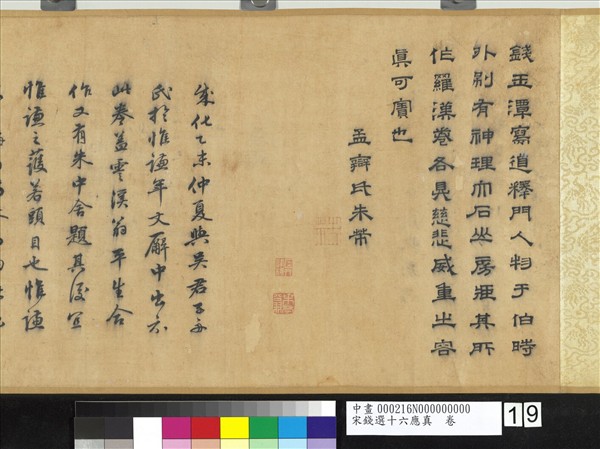 錢玉潭寫道釋門人物于伯時
外別有神理而石其所
作羅漢卷各具慈悲威重之容
眞可寶也
孟齊氏朱芾
成化乙未仲夏與吳君
民於惟謙年文解中出示
此卷蓋霅溪翁平生合
作又有朱中舍題其後宜
惟謙之護若頭目也惟謙
中畫000216N000000000
宋錢選十六應真 卷
19